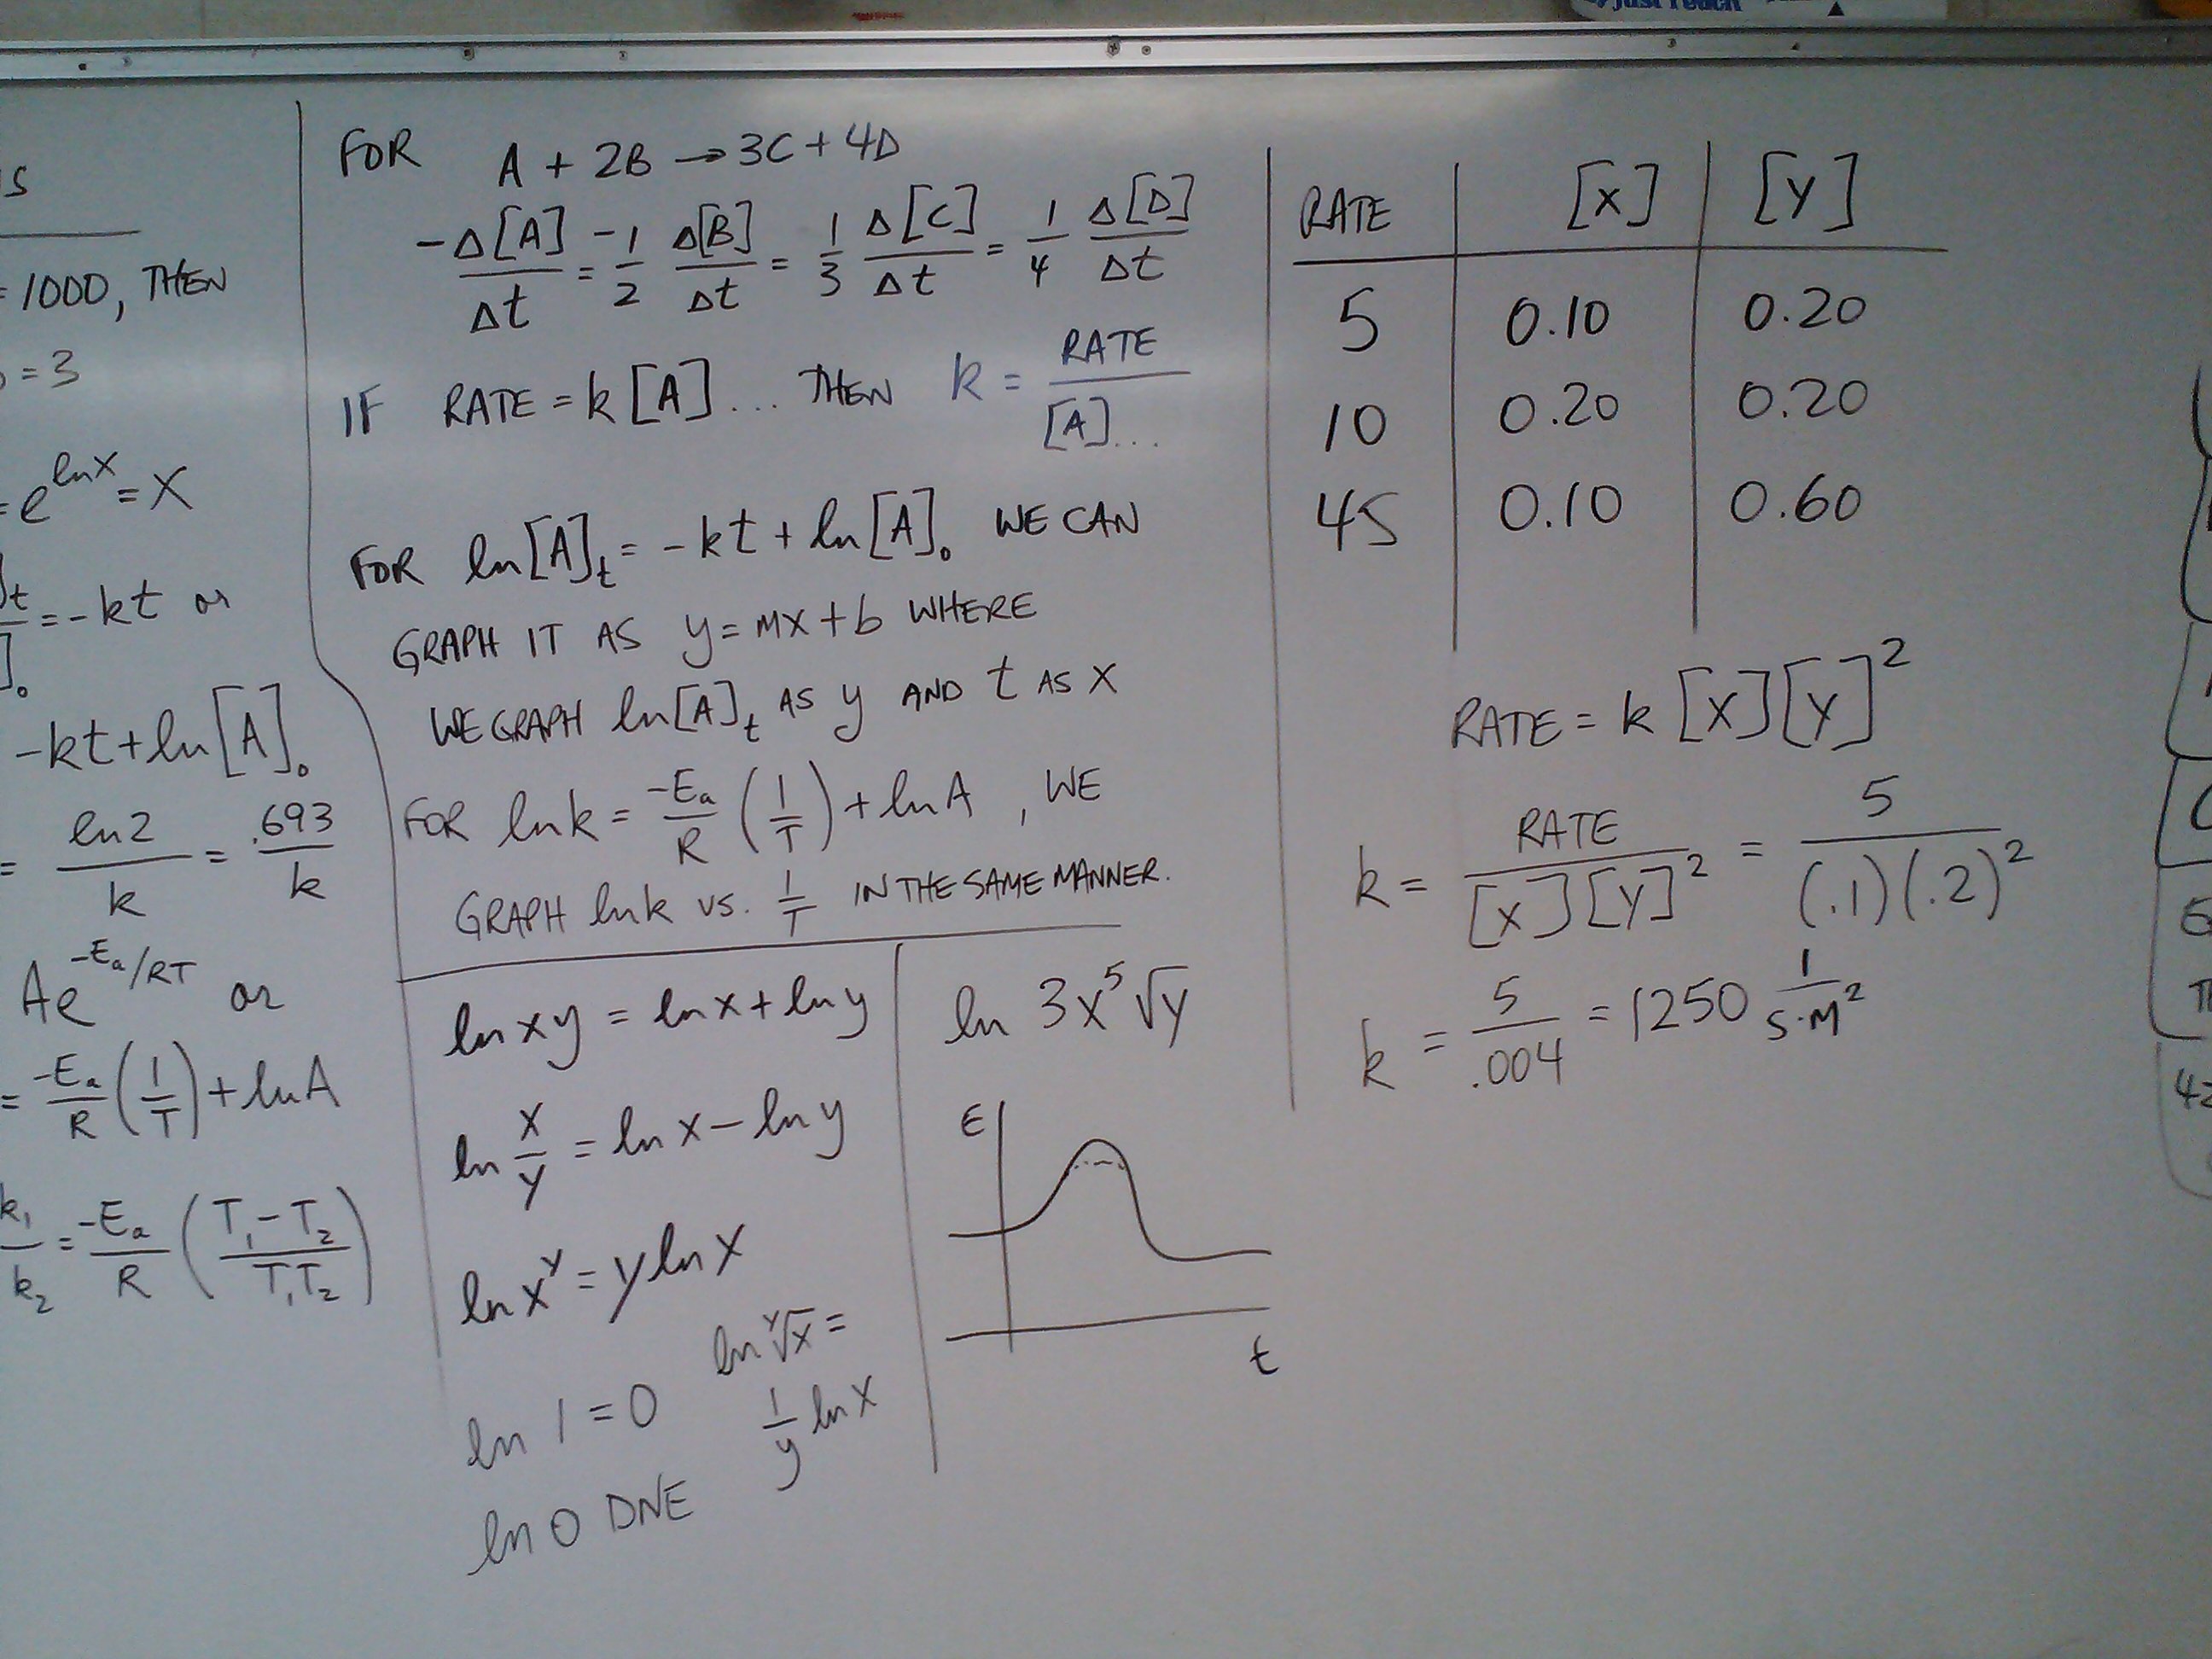 Just Touch
S
= 1000, THEN
= 3
= e^(ln x) = X
t = -kt or
]₀
-kt + ln[A]₀
= ln2/k = .693/k
Ae^(-Ea/RT) or
= -Ea/R (1/T) + ln A
k₁/k₂ = -Ea/R ((T₁-T₂)/(T₁T₂))
FOR A + 2B → 3C + 4D
-Δ[A]/Δt = -1/2 Δ[B]/Δt = 1/3 Δ[C]/Δt = 1/4 Δ[D]/Δt
IF RATE = k[A]... THEN k = RATE/[A]...
FOR ln[A]t = -kt + ln[A]₀ WE CAN
GRAPH IT AS y = mx + b WHERE
WE GRAPH ln[A]t AS y AND t AS X
FOR ln k = -Ea/R (1/T) + ln A, WE
GRAPH ln k VS. 1/T IN THE SAME MANNER.
ln xy = ln x + ln y
ln x/y = ln x - ln y
ln x^y = y ln x
ln ʸ√x =
1/y ln x
ln 1 = 0
ln 0 DNE
ln 3x⁵√y
E
t
RATE [X] [Y]
5 0.10 0.20
10 0.20 0.20
45 0.10 0.60
RATE = k[X][Y]²
k = RATE/[X][Y]² = 5/(.1)(.2)²
k = 5/.004 = 1250 1/S·M²